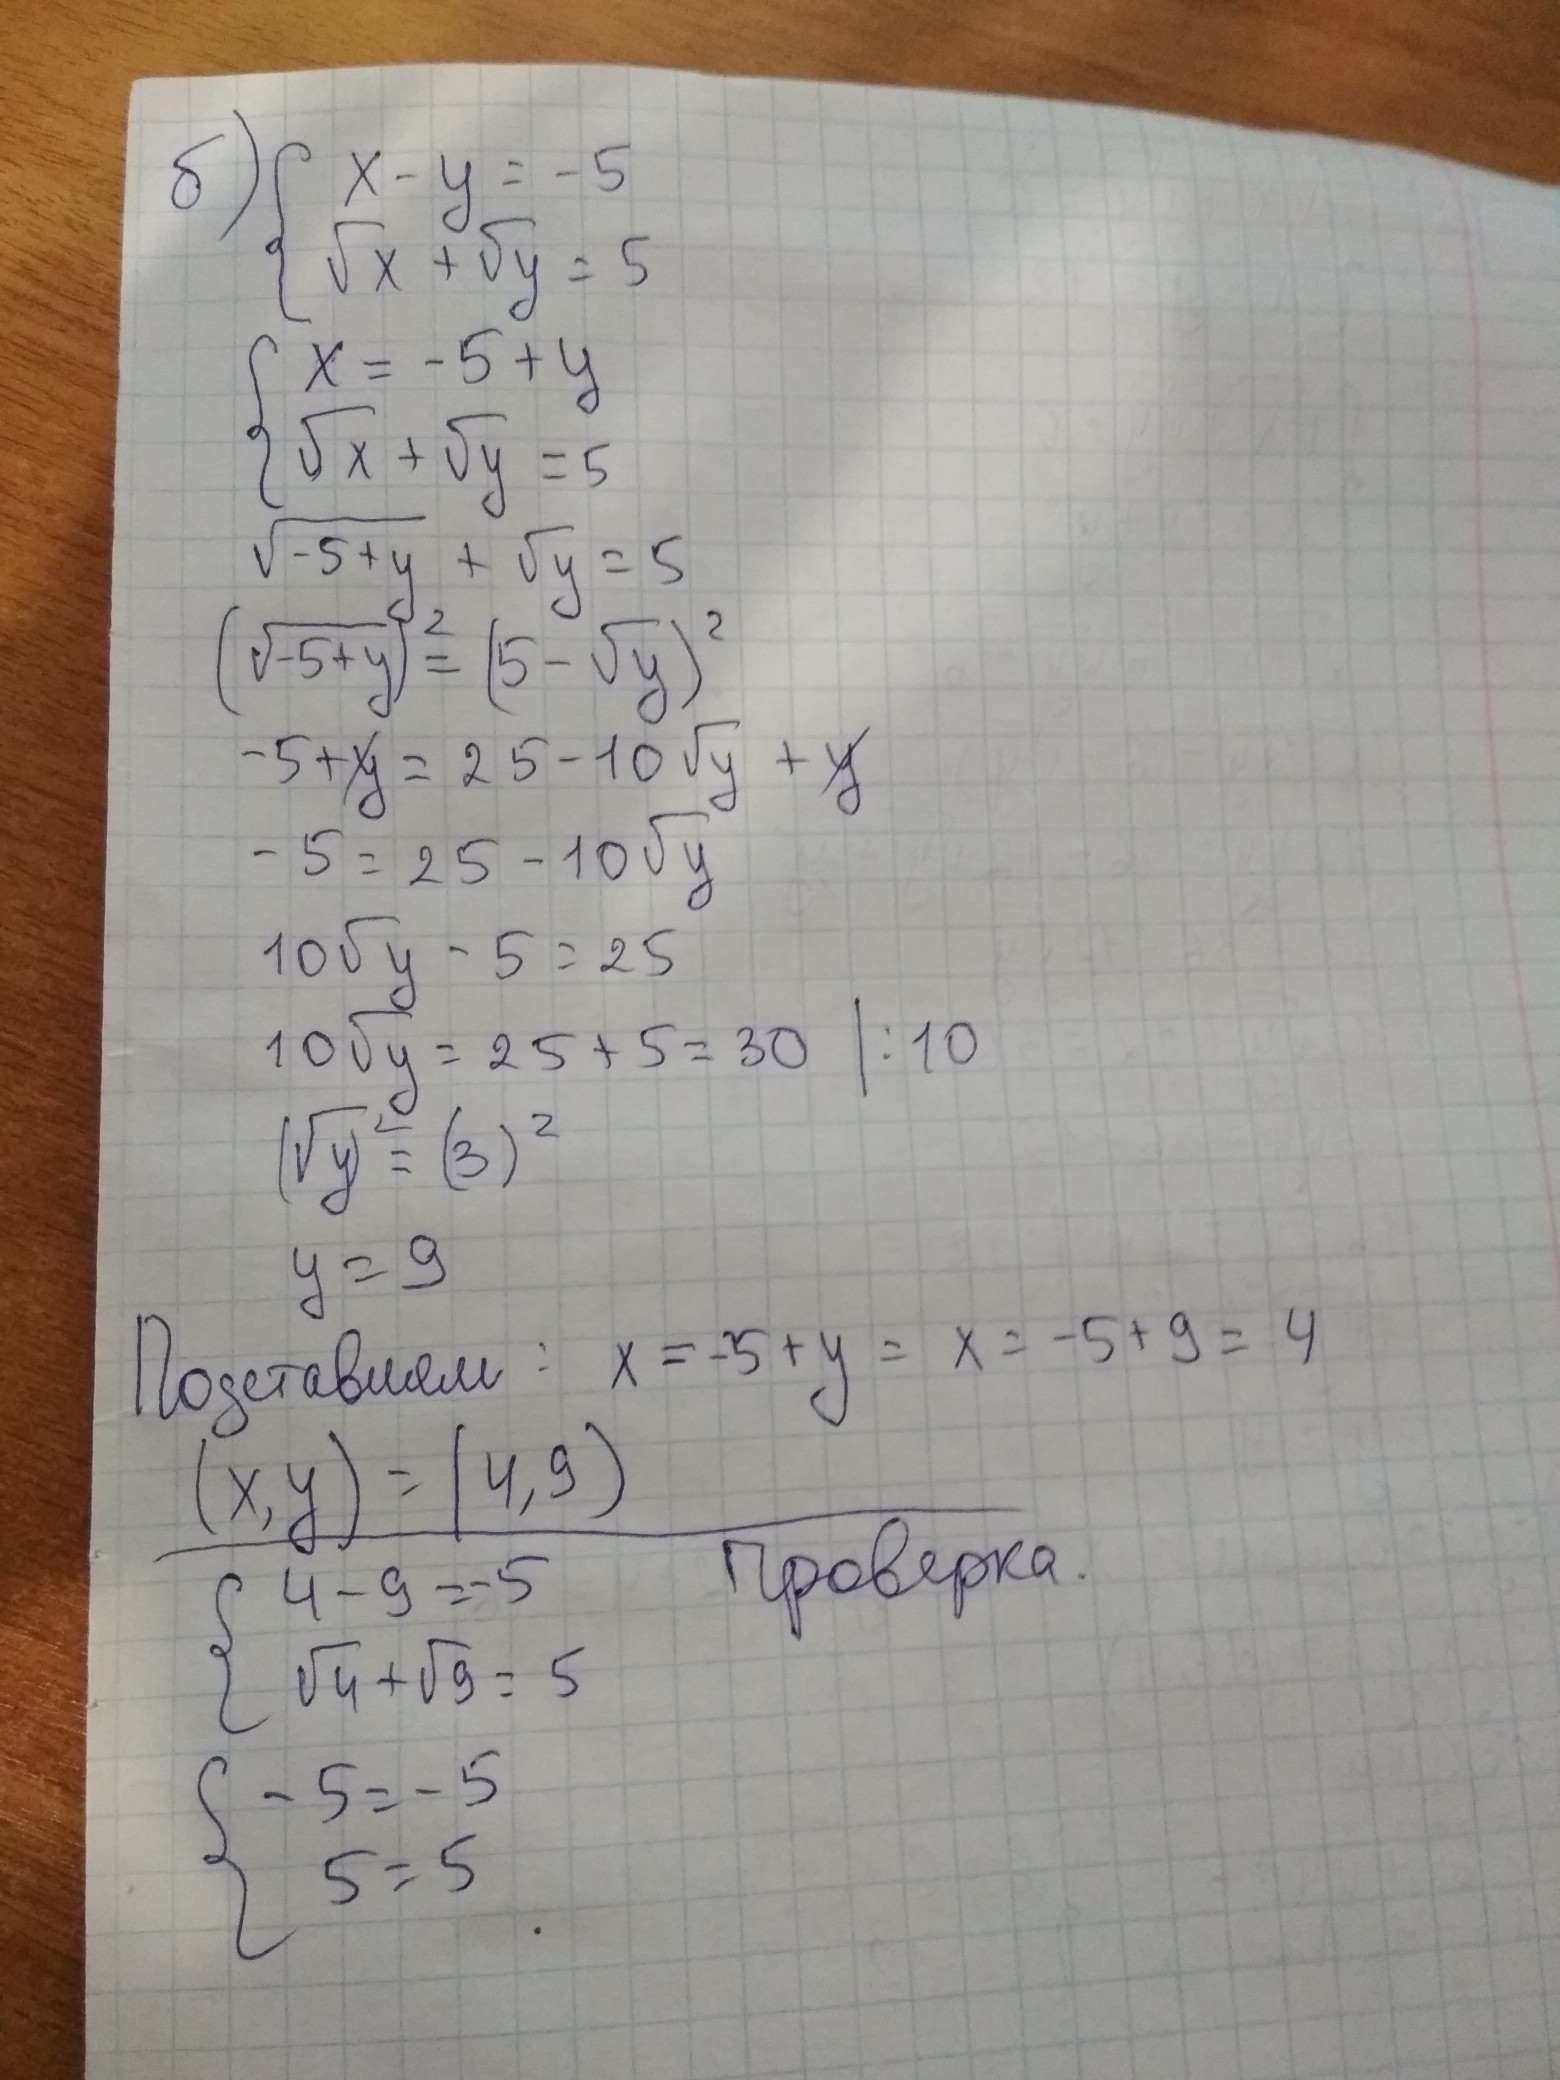 б) { x - y = -5
√x + √y = 5
{ x = -5 + y
√x + √y = 5
√-5+y + √y = 5
(√-5+y)² = (5 - √y)²
-5 + y = 25 - 10√y + y
-5 = 25 - 10√y
10√y - 5 = 25
10√y = 25 + 5 = 30 | : 10
(√y)² = (3)²
y = 9
Подставляем : x = -5 + y = x = -5 + 9 = 4
(x, y) = (4, 9)
Проверка.
{ 4 - 9 = -5
√4 + √9 = 5
{ -5 = -5
5 = 5